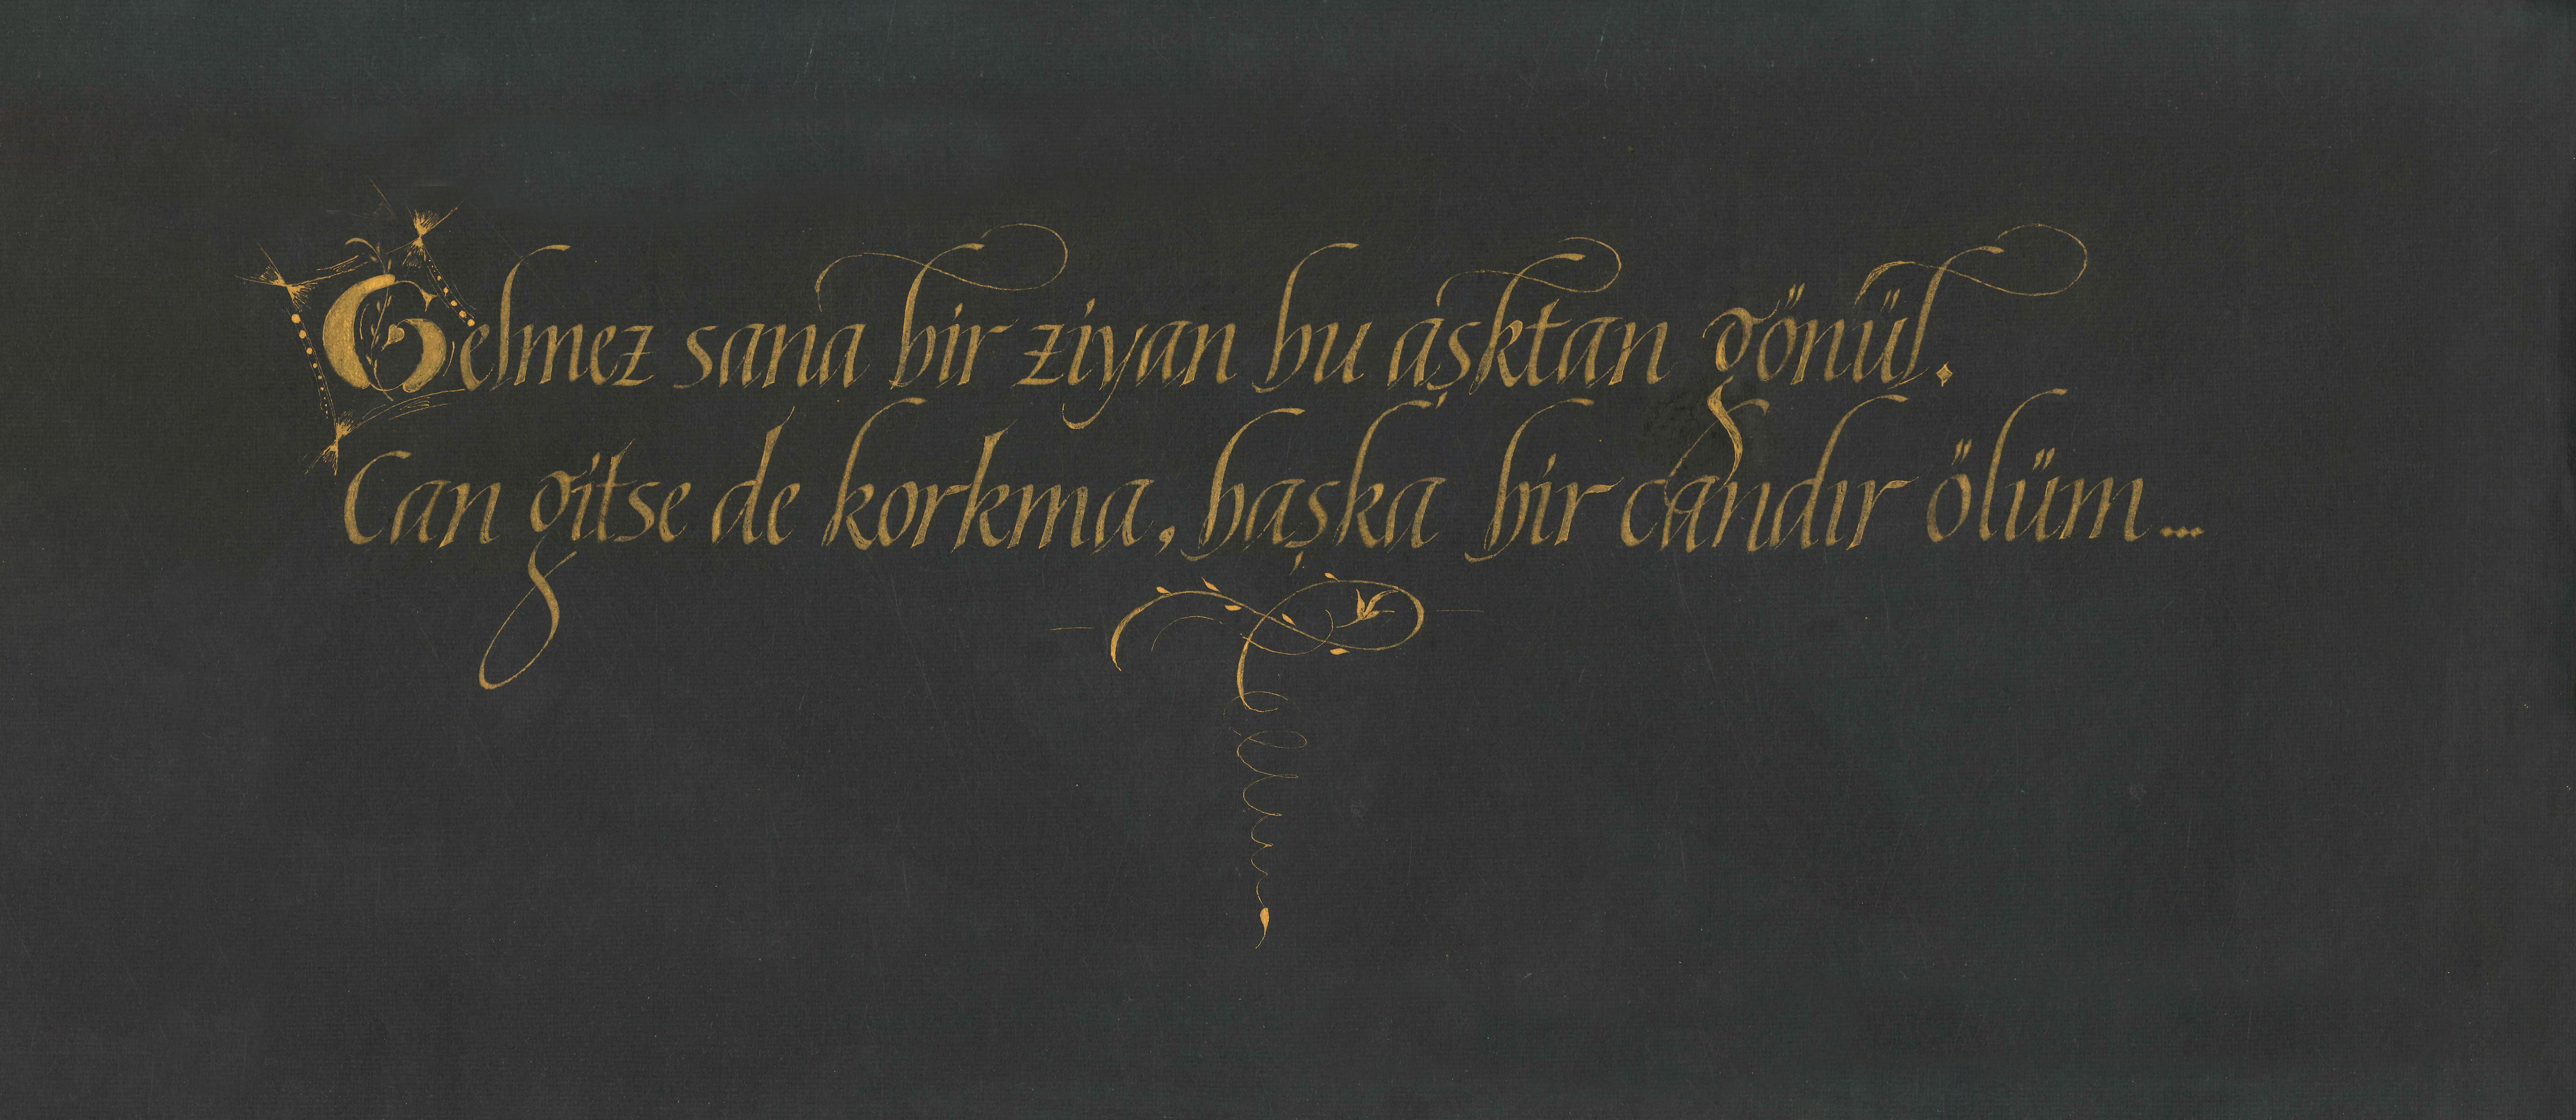 Gelmez sana bir ziyan bu aşktan gönül.
Can gitse de korkma, başka bir candır ölüm...